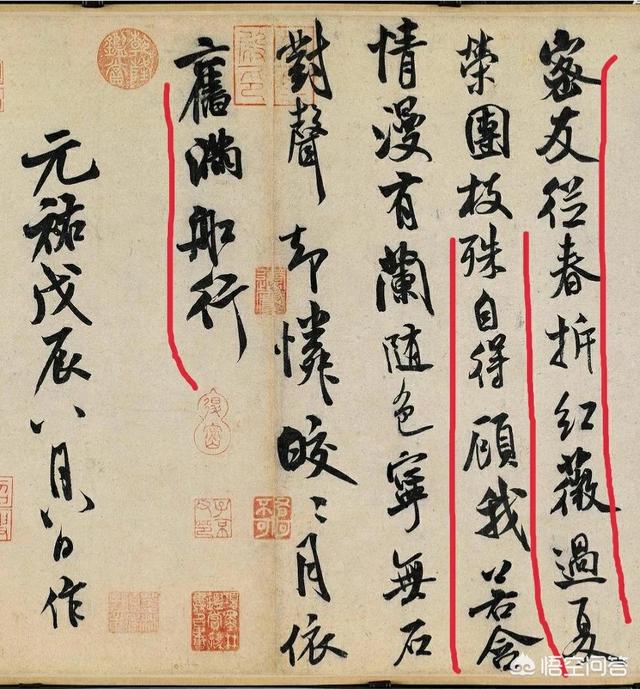 密友從春拆紅薇過夏
榮團枝殊自得顧我若含
情漫有蘭隨色寧無石
對聲却憐皎〻月依
舊滿船行
元祐戊辰八月八日作
乾隆鑑賞
悟空问答